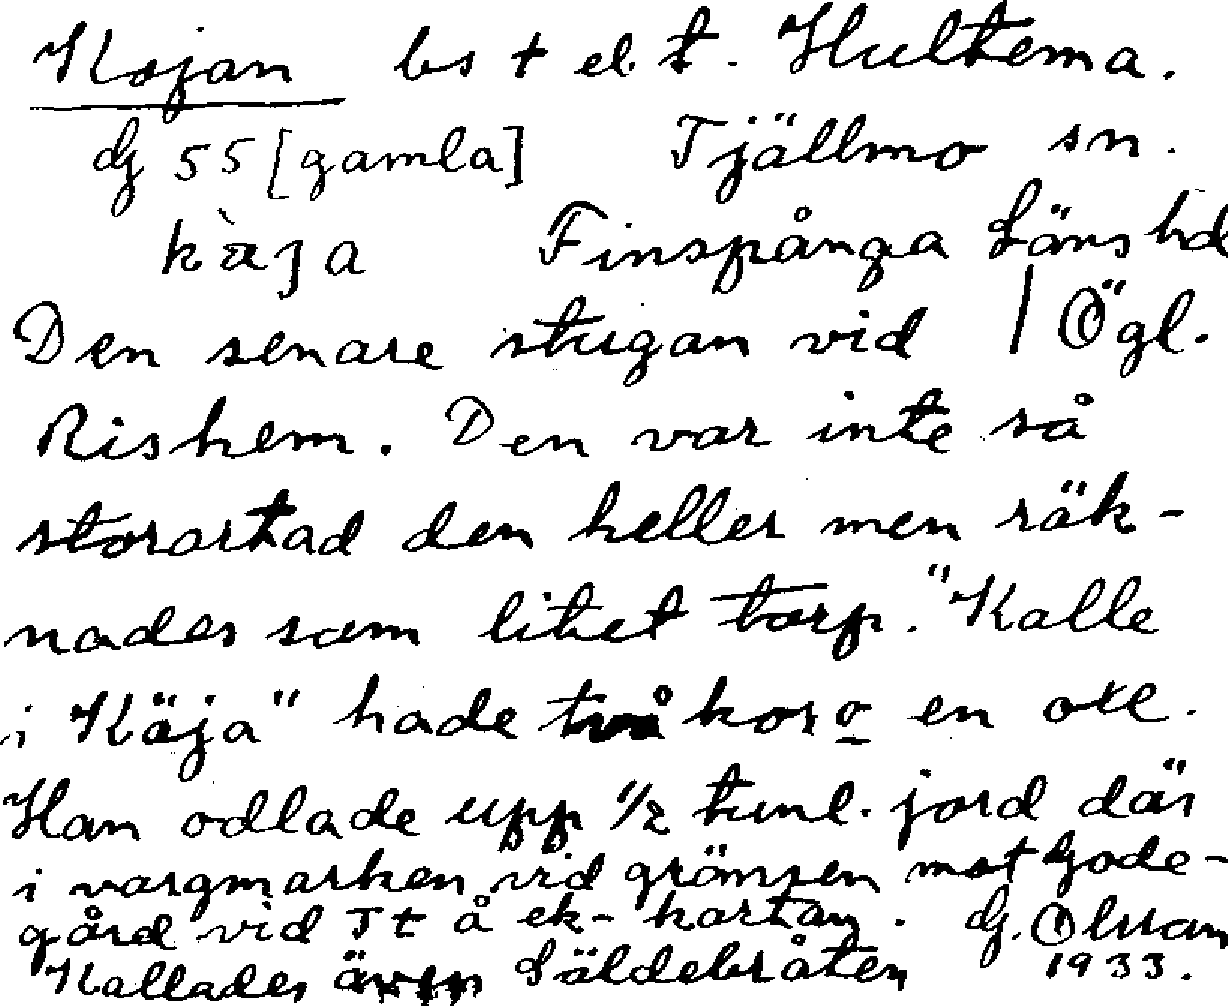 Kojan bs t el. t. Hultema.
dj 55 [gamla] Tjällmo sn.
Finspånga Läns hd
Den senare stugan vid / Ögl.
Rishem. Den var inte så
storartad den heller men räk-
nades som litet torp. "Kalle
i Köja" hade två kor o en oxe.
Han odlade upp 1/2 tunl. jord där
i vargmarken vid gränsen mot Gode-
gård vid Tt å ek-kartan. Olsson
Kallades även Säldebråten 1933.